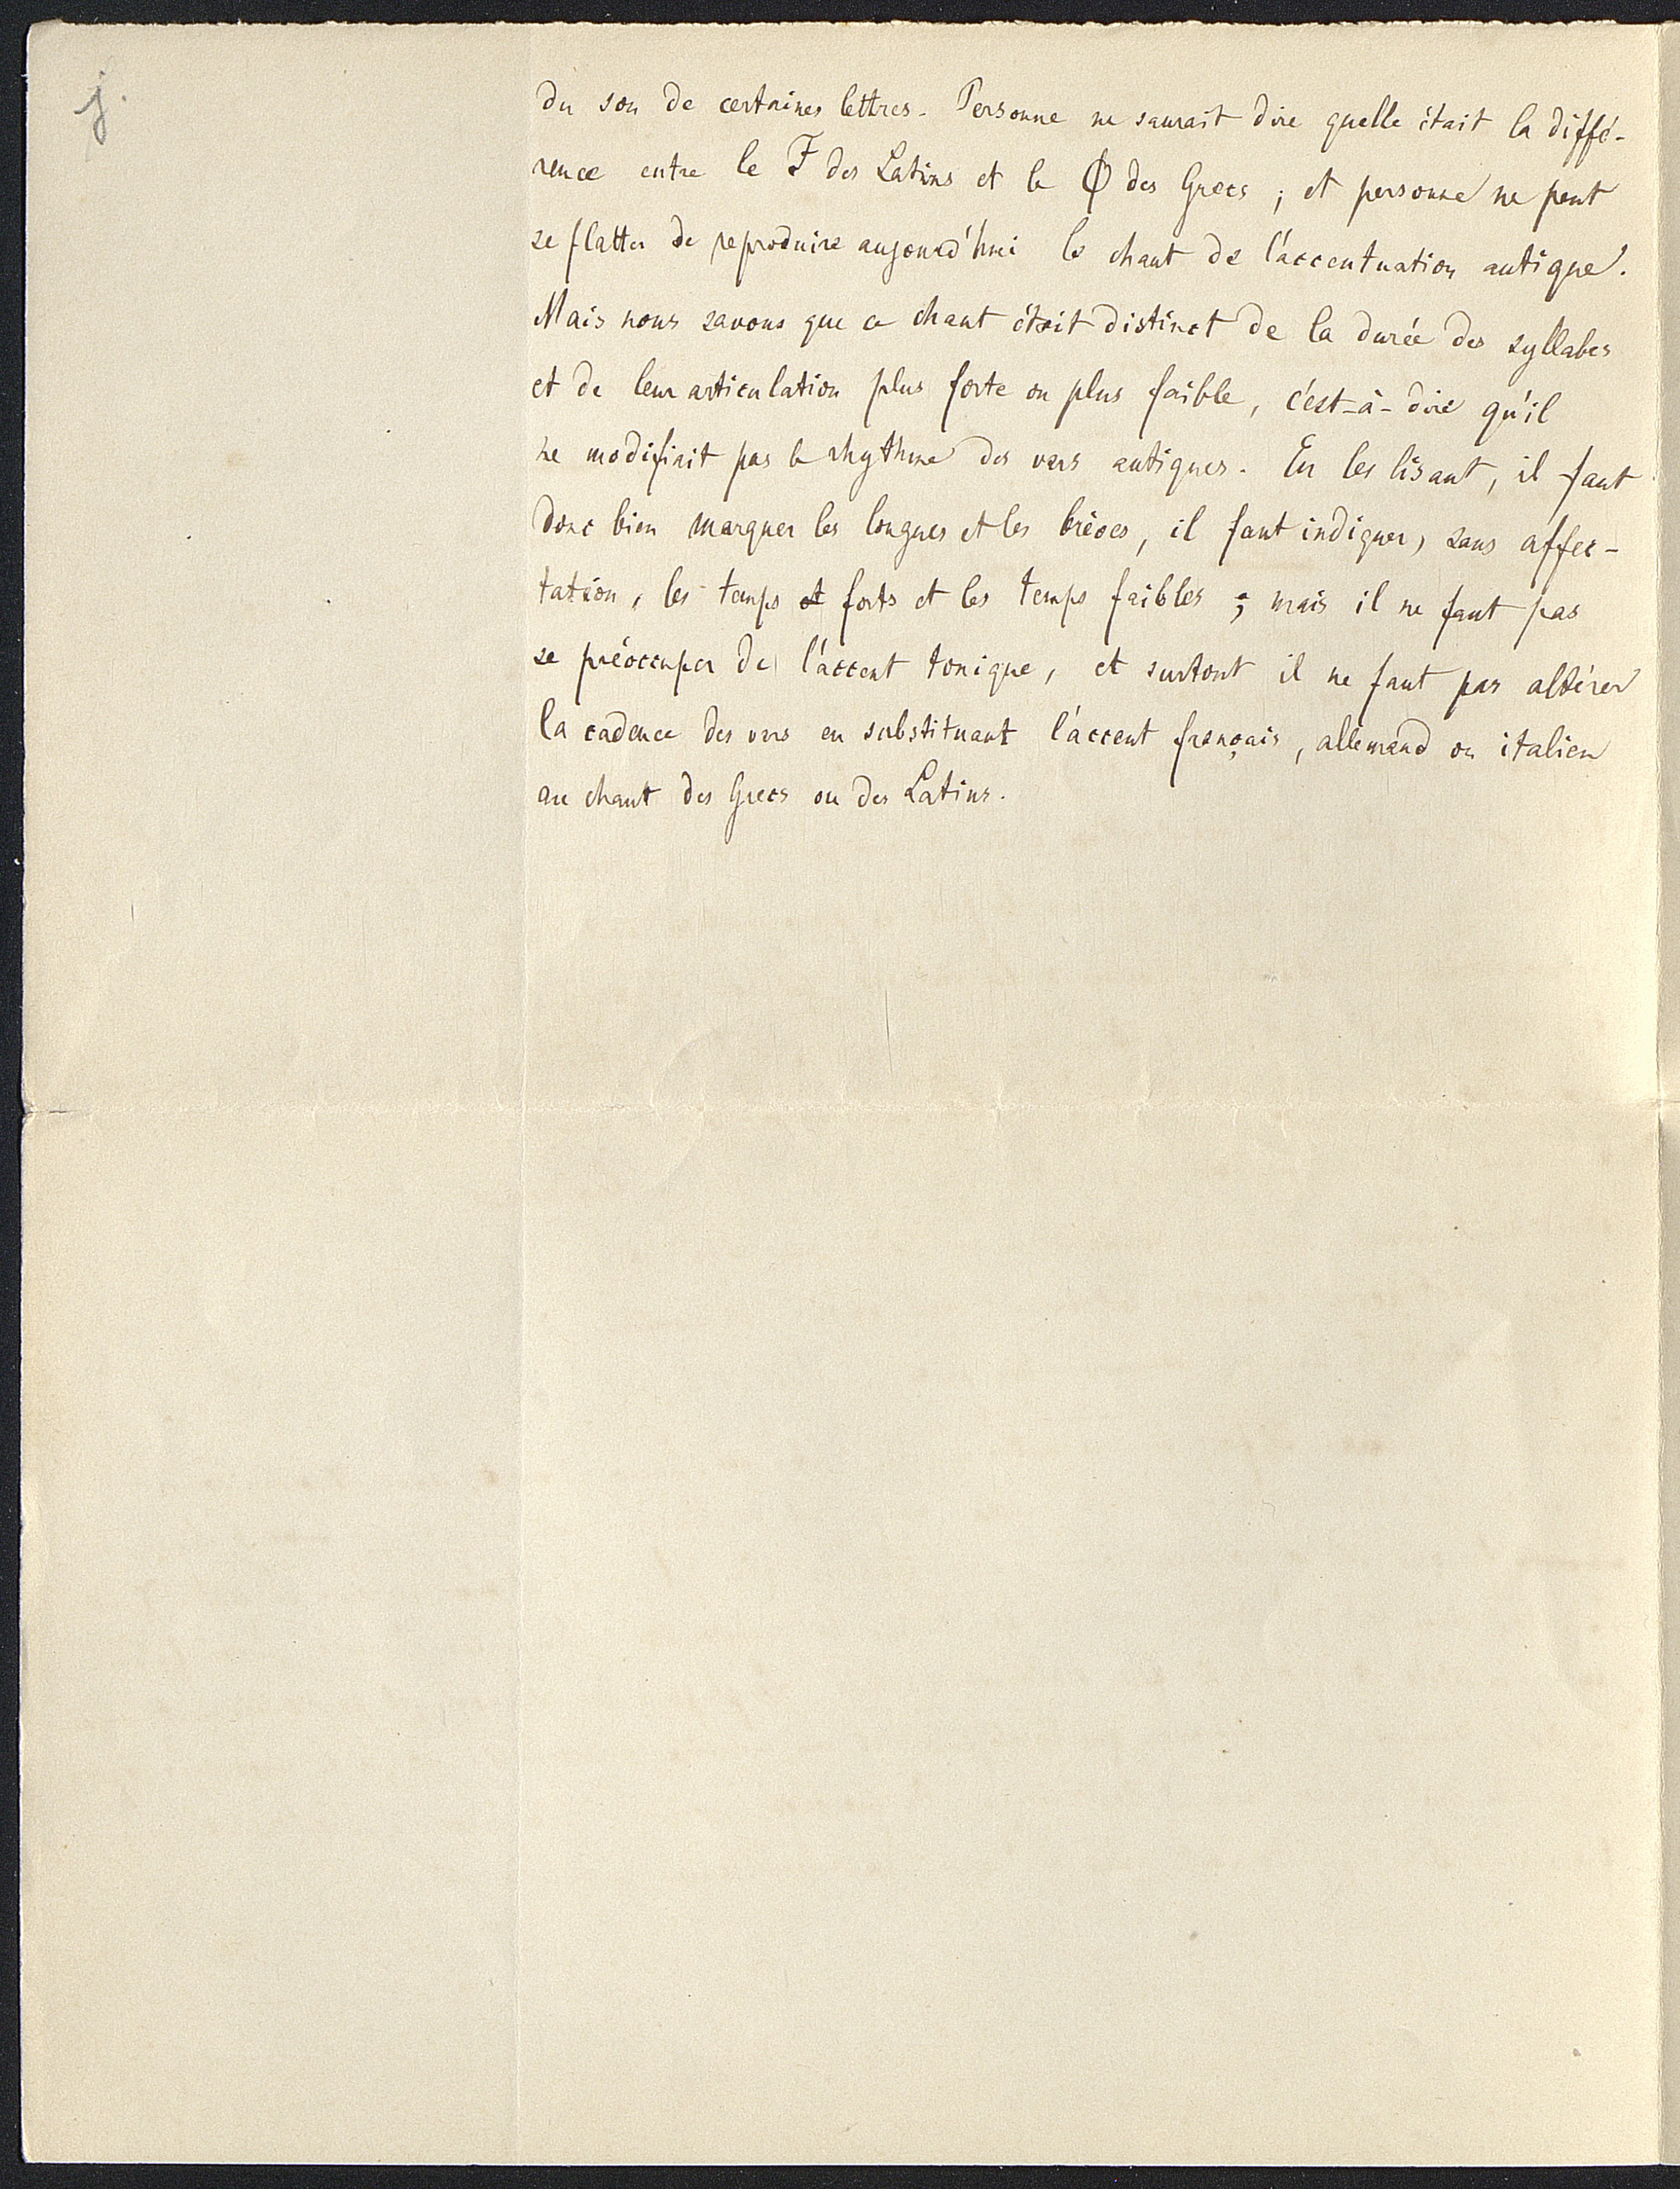 j.
du son de certaines lettres. Personne ne saurait dire quelle était la diffé-
rence entre le F des Latins et le Φ des Grecs ; et personne ne peut
se flatter de reproduire aujourd'hui le chant de l'accentuation antique.
Mais nous savons que ce chant était distinct de la durée des syllabes
et de leur articulation plus forte ou plus faible, c'est-à-dire qu'il
ne modifiait pas le rhythme des vers antiques. En les lisant, il faut
donc bien marquer les longues et les brèves, il faut indiquer, sans affec-
tation, les temps et forts et les temps faibles ; mais il ne faut pas
se préoccuper de l'accent tonique, et surtout il ne faut pas altérer
la cadence des vers en substituant l'accent français, allemand ou italien
au chant des Grecs ou des Latins.